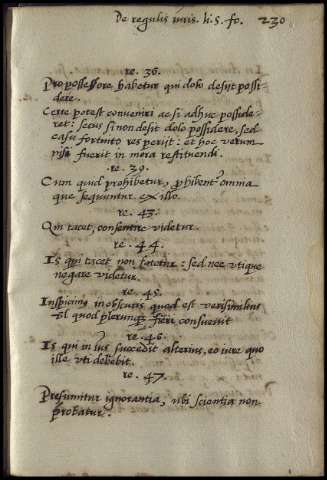 De regulis iuris. li. 5. fo. 230
re. 36.
Pro possessore habetur qui dolo desiit possi
dere.
Certe potest conveniri ac si adhuc posside
ret: secus si non desiit dolo possidere, sed
casu fortuito res periit: et hoc verum
nisi fuerit in mora restituendi.
re. 39.
Cum quid prohibetur, prohibent' omnia
que sequuntur ex illo.
re. 43.
Qui tacet, consentire videtur.
re. 44.
Is qui tacet non fatetur: sed nec utique
negare videtur.
re. 45.
Inspicimus in obscuris quod est verisimilius
vel quod plerunq; fieri consuevit
re. 46.
Is qui in ius succedit alterius, eo iure quo
ille uti debebit.
re. 47.
Presumitur ignorantia, ubi scientia non
probatur.